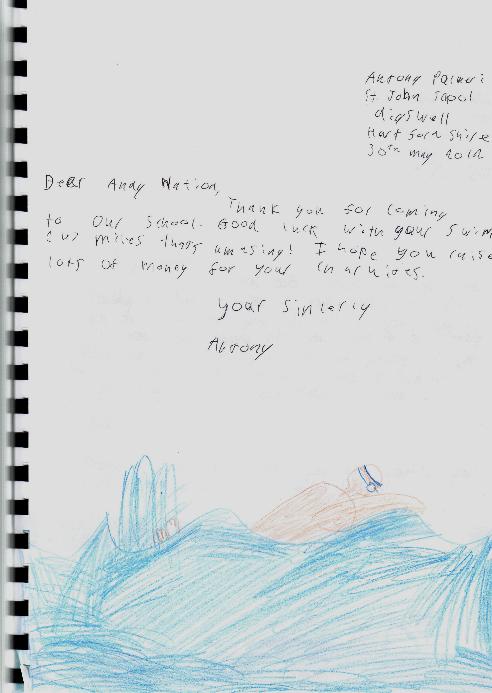 Antony Palmeri
St John Scool
digswell
Hart ford Shire
30th may 2012
Dear Andy Nation,
Thank you for coming
to our school. Good luck with your swim
miles thats amasing! I hope you raise
lots of money for your charities.
your sincerly
Antony